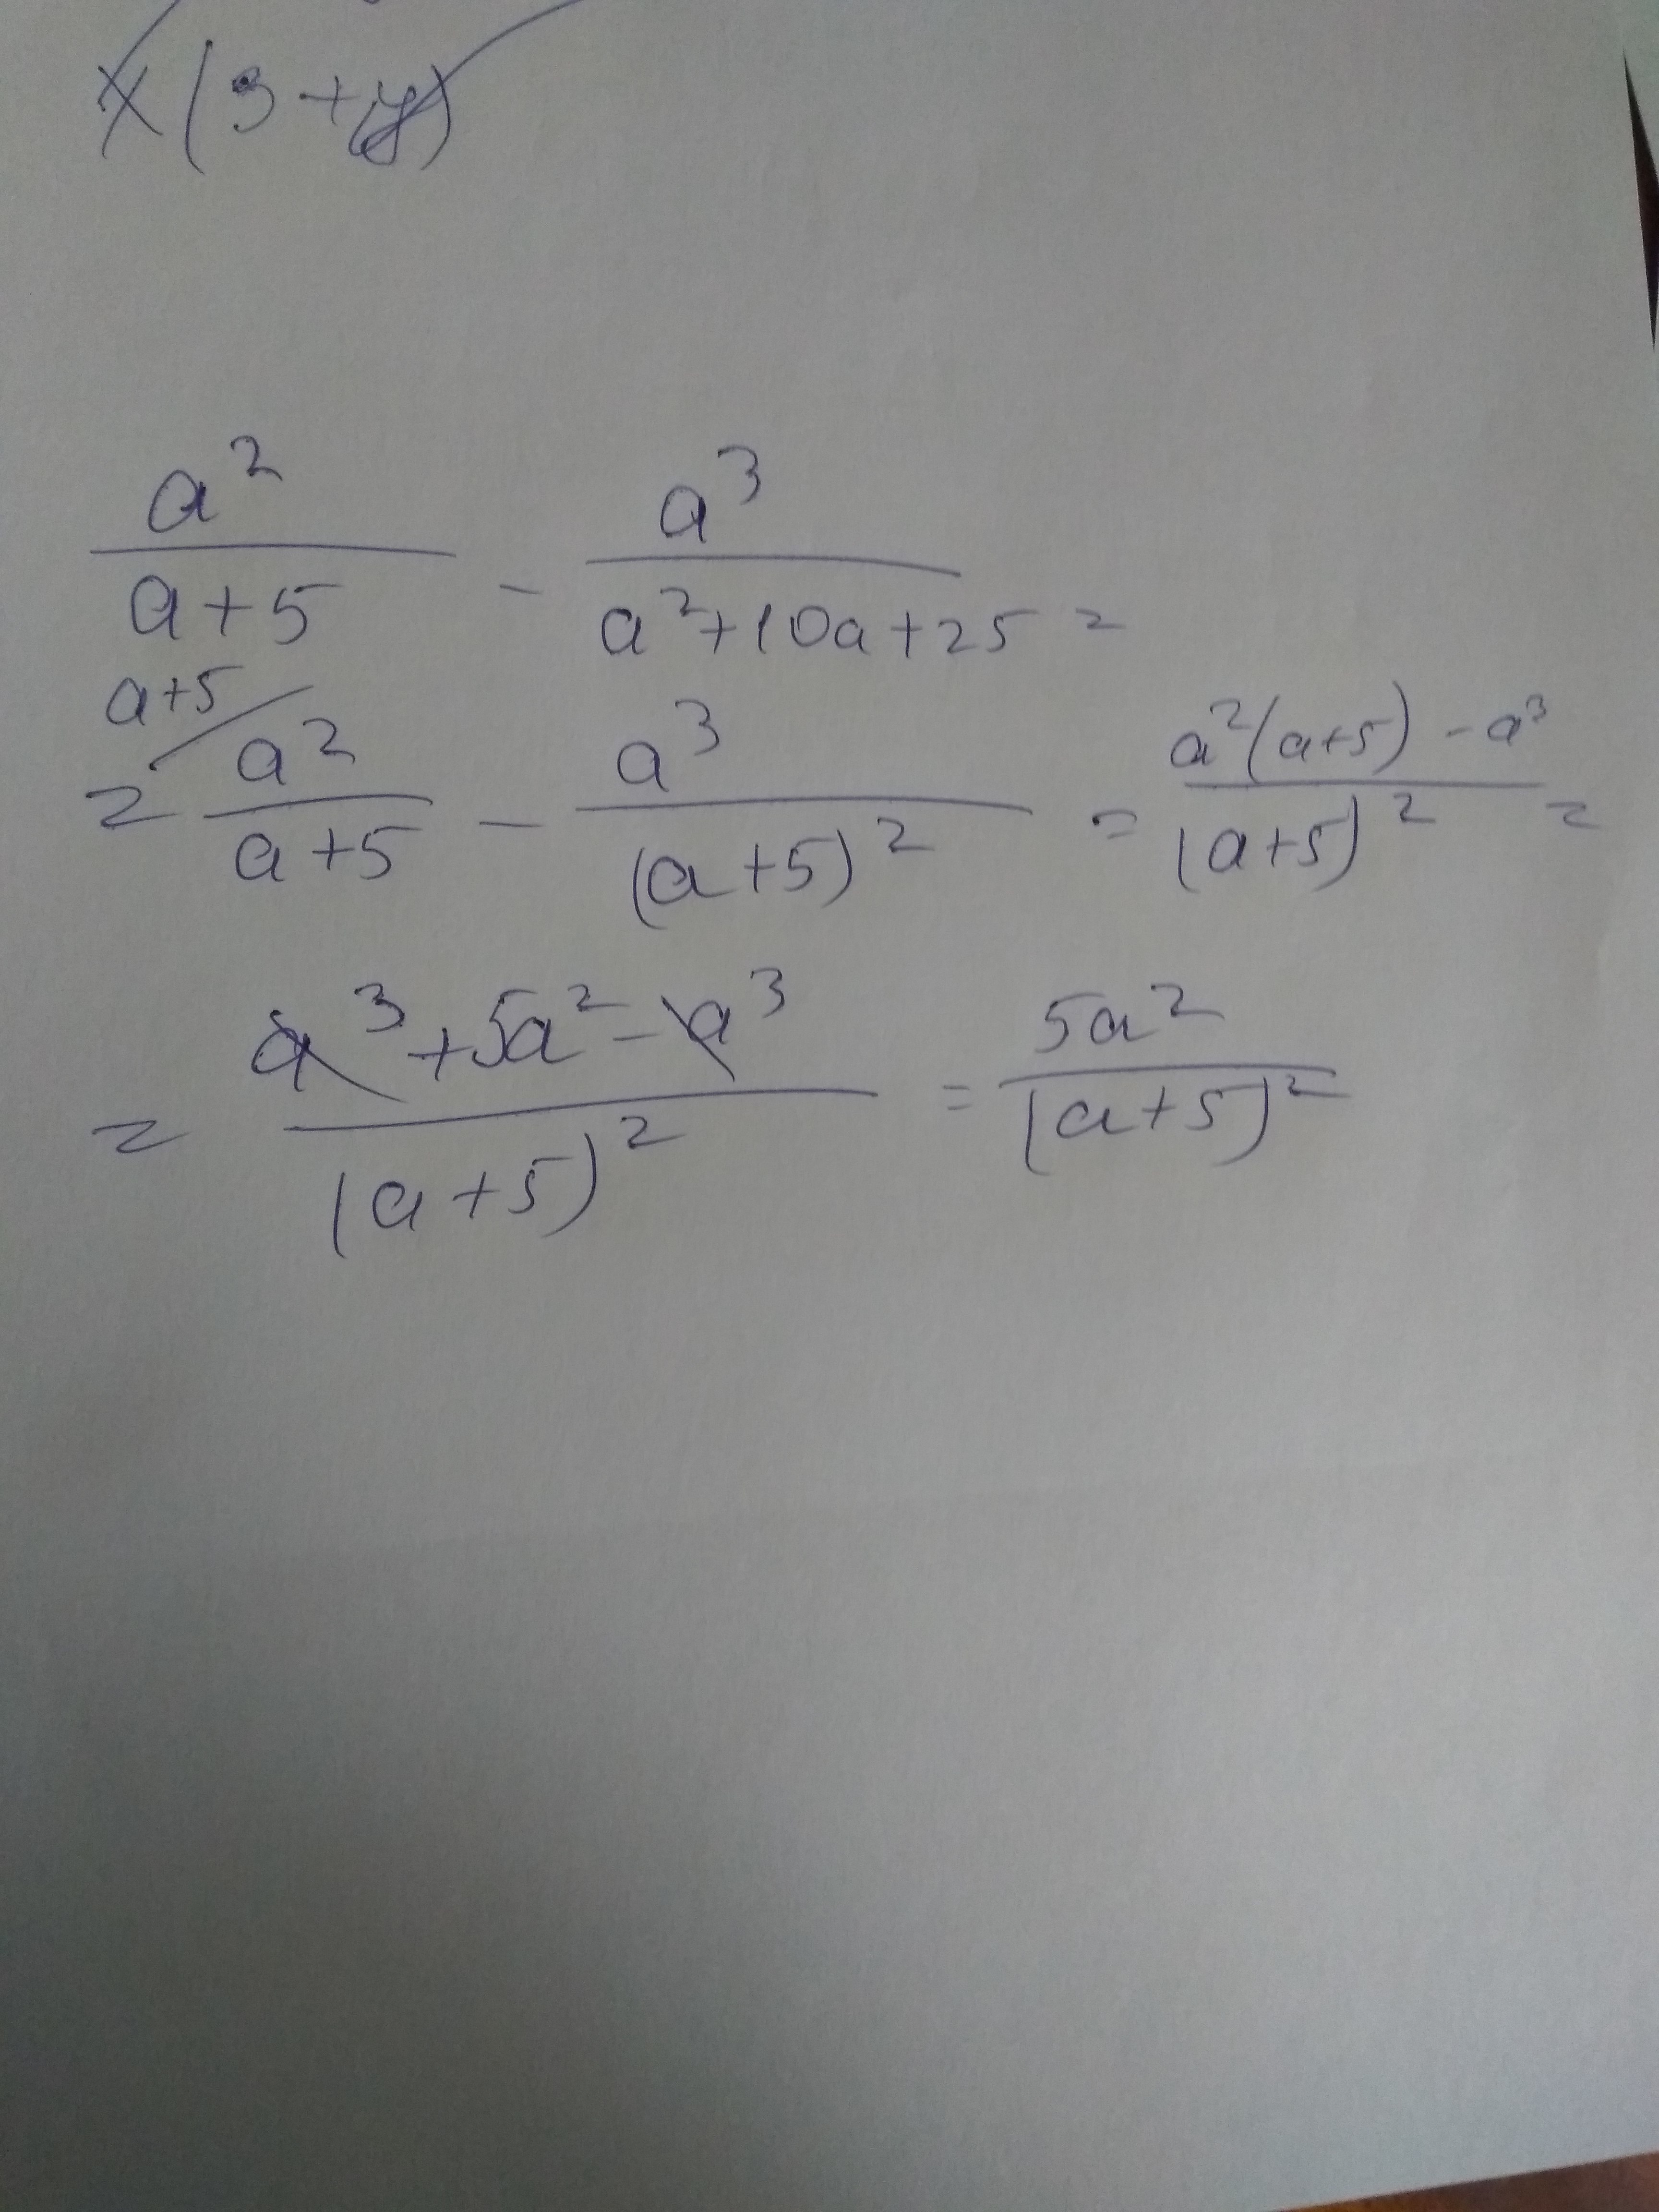 x(3+y)
a²/(a+5) - a³/(a²+10a+25) =
= a+5/ a²/(a+5) - a³/(a+5)² = (a²(a+5) - a³)/(a+5)² =
= (a³+5a²-a³)/(a+5)² = 5a²/(a+5)²